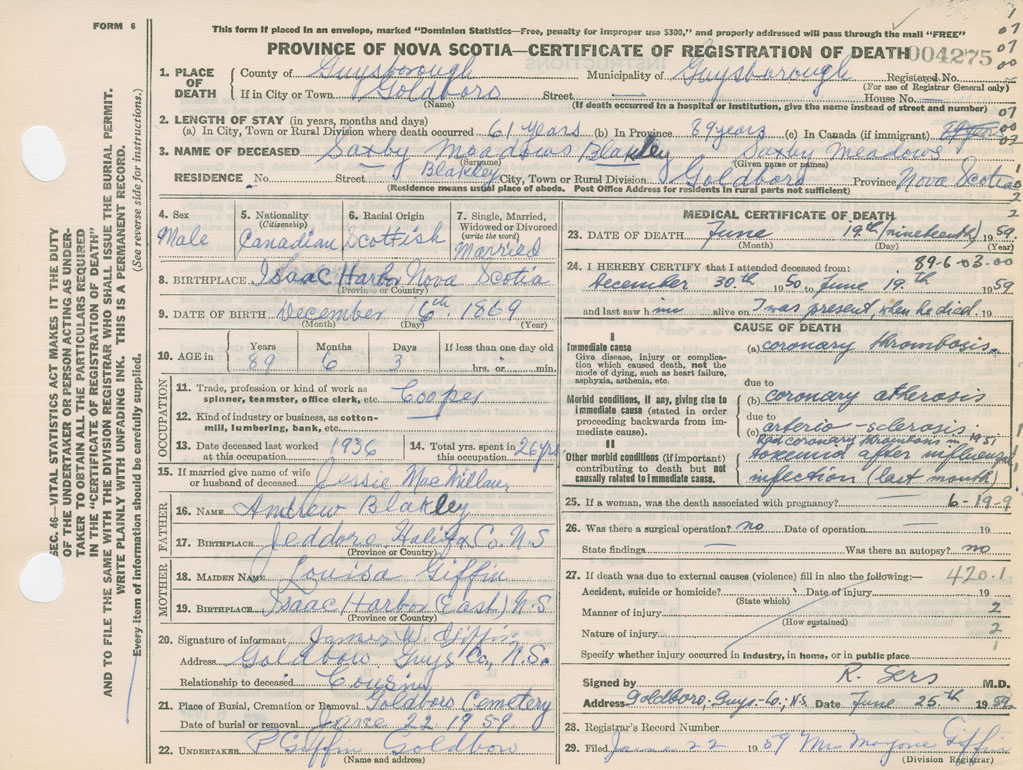 FORM 6
This form if placed in an envelope, marked "Dominion Statistics—Free, penalty for improper use $300," and properly addressed will pass through the mail "FREE"
PROVINCE OF NOVA SCOTIA—CERTIFICATE OF REGISTRATION OF DEATH 004275
1. PLACE OF DEATH County of Guysborough Municipality of Guysborough Registered No.
(For use of Registrar General only)
If in City or Town Goldboro Street — House No. —
(Name) (If death occurred in a hospital or institution, give the name instead of street and number)
2. LENGTH OF STAY (in years, months and days)
(a) In City, Town or Rural Division where death occurred 61 years (b) In Province 89 years (c) In Canada (if immigrant)
3. NAME OF DECEASED Saxby Meadows Blakley Saxby Meadows
(Surname) Blakley (Given name or names)
RESIDENCE No. Street City, Town or Rural Division Goldboro Province Nova Scotia
(Residence means usual place of abode. Post Office Address for residents in rural parts not sufficient)
4. Sex Male
5. Nationality (Citizenship) Canadian
6. Racial Origin Scottish
7. Single, Married, Widowed or Divorced (write the word) Married
8. BIRTHPLACE Isaac Harbor Nova Scotia
(Province or Country)
9. DATE OF BIRTH December 16th 1869
(Month) (Day) (Year)
10. AGE in Years Months Days If less than one day old
89 6 3 hrs. or min.
OCCUPATION
11. Trade, profession or kind of work as spinner, teamster, office clerk, etc. Cooper
12. Kind of industry or business, as cotton-mill, lumbering, bank, etc. —
13. Date deceased last worked at this occupation 1936
14. Total yrs. spent in this occupation 26 yrs
15. If married give name of wife or husband of deceased Jessie MacMillan
FATHER
16. NAME Andrew Blakley
17. BIRTHPLACE Jeddore Halifax Co. N.S
(Province or Country)
MOTHER
18. MAIDEN NAME Louisa Giffin
19. BIRTHPLACE Isaac Harbor (East) N.S
(Province or Country)
20. Signature of informant James W. Giffin
Address Goldboro Guys Co., N.S.
Relationship to deceased Cousin
21. Place of Burial, Cremation or Removal Goldboro Cemetery
Date of burial or removal June 22 1959
22. UNDERTAKER P Giffin Goldboro
(Name and address)
MEDICAL CERTIFICATE OF DEATH
23. DATE OF DEATH June 19th (nineteenth) 1959
(Month) (Day) (Year)
89-6-03-00
24. I HEREBY CERTIFY that I attended deceased from:
December 30th 1950 to June 19th 1959
and last saw him alive on I was present, when he died. 19
CAUSE OF DEATH
I
Immediate cause
Give disease, injury or complication which caused death, not the mode of dying, such as heart failure, asphyxia, asthenia, etc.
(a) coronary thrombosis
due to
Morbid conditions, if any, giving rise to immediate cause (stated in order proceeding backwards from immediate cause).
(b) coronary atherosis
due to
(c) arterio-sclerosis
coronary thrombosis in 1951
II
Other morbid conditions (if important) contributing to death but not causally related to immediate cause.
toxemia after influenza
infection (last month)
25. If a woman, was the death associated with pregnancy? 6-19-9
26. Was there a surgical operation? no Date of operation — 19
State findings — Was there an autopsy? no
27. If death was due to external causes (violence) fill in also the following:— 420.1
Accident, suicide or homicide? Date of injury 19
(State which)
Manner of injury 2
(How sustained)
Nature of injury 2
Specify whether injury occurred in industry, in home, or in public place 1
Signed by R. Sers M.D.
Address Goldboro, Guys-Co; N.S. Date June 25th 1959
28. Registrar's Record Number
29. Filed June 22 1959 Mrs Marjorie Giffin
(Division Registrar)
SEC. 46—VITAL STATISTICS ACT MAKES IT THE DUTY
OF THE UNDERTAKER OR PERSON ACTING AS UNDER-
TAKER TO OBTAIN ALL THE PARTICULARS REQUIRED
IN THE "CERTIFICATE OF REGISTRATION OF DEATH"
AND TO FILE THE SAME WITH THE DIVISION REGISTRAR WHO SHALL ISSUE THE BURIAL PERMIT.
WRITE PLAINLY WITH UNFADING INK. THIS IS A PERMANENT RECORD.
Every item of information should be carefully supplied. (See reverse side for instructions.)